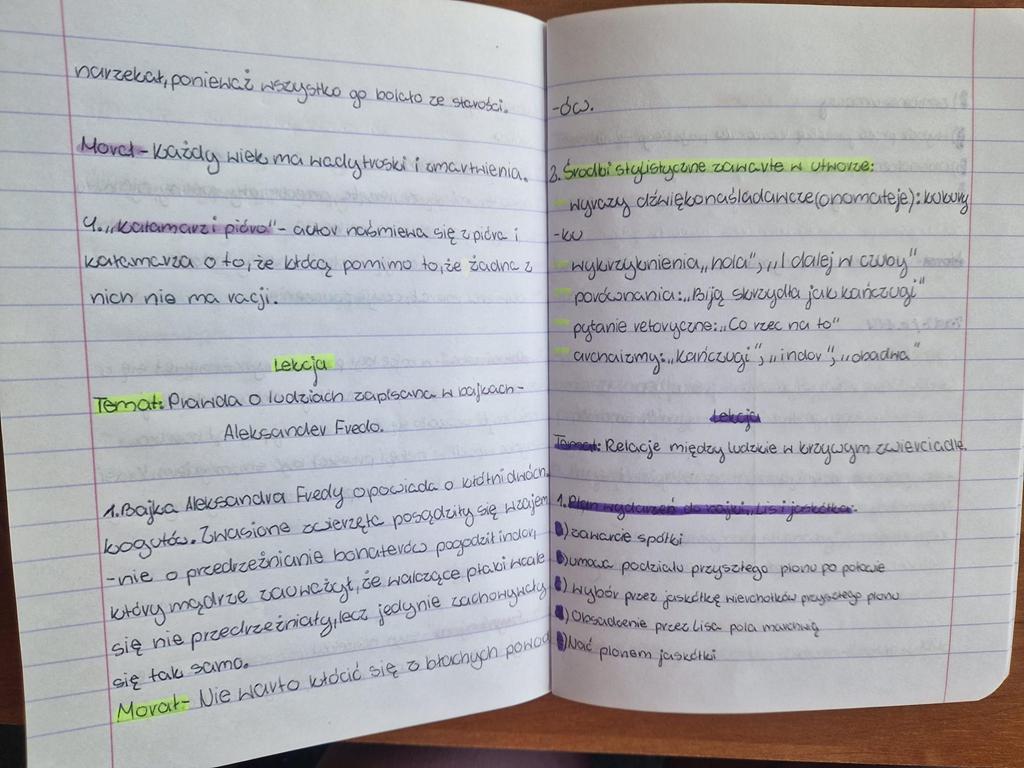 narzekał, ponieważ wszystko go bolało ze starości.
Morał - Każdy wiek ma wady, troski i zmartwienia.
4. „Kałamarz i pióro" - autor naśmiewa się z pióra i
kałamarza o to, że kłócą pomimo to, że żadna z
nich nie ma racji.
Lekcja
Temat: Prawda o ludziach zapisana w bajkach -
Aleksander Fredo.
1. Bajka Aleksandra Fredy opowiada o kłótni dwóch
kogutów. Zwaśione zwierzęta posądziły się wzajem
-nie o przedrzeźnianie bohaterów pogodził indor,
który mądrze zauważył, że walczące ptaki wcale
się nie przedrzeźniały, lecz jedynie zachowywały
się tak samo.
Morał - Nie warto kłócić się z błachych powod
-ów.
2. Środki stylistyczne zawarte w utworze:
- wyrazy dźwiękonaśladawcze (onomateje): kukury
-ku
- wykrzyknienia „hola", „I dalej w czuby"
- porównania: „Biją skrzydła jak kańczugi"
- pytanie retoryczne: „Co rzec na to"
- archaizmy: „kańczugi", „indor", „obadwa"
Lekcja
Temat: Relacje między ludzkie w krzywym zwierciadle.
1. Plan wydarzeń do bajki „Lis i jaskółka".
) zawarcie spółki
) umowa podziału przyszłego plonu po połowie
) wybór przez jaskółkę wierchołków przyszłego plonu
) Obsadzenie przez Lisa pola marchwią
) Nać plonem jaskółki